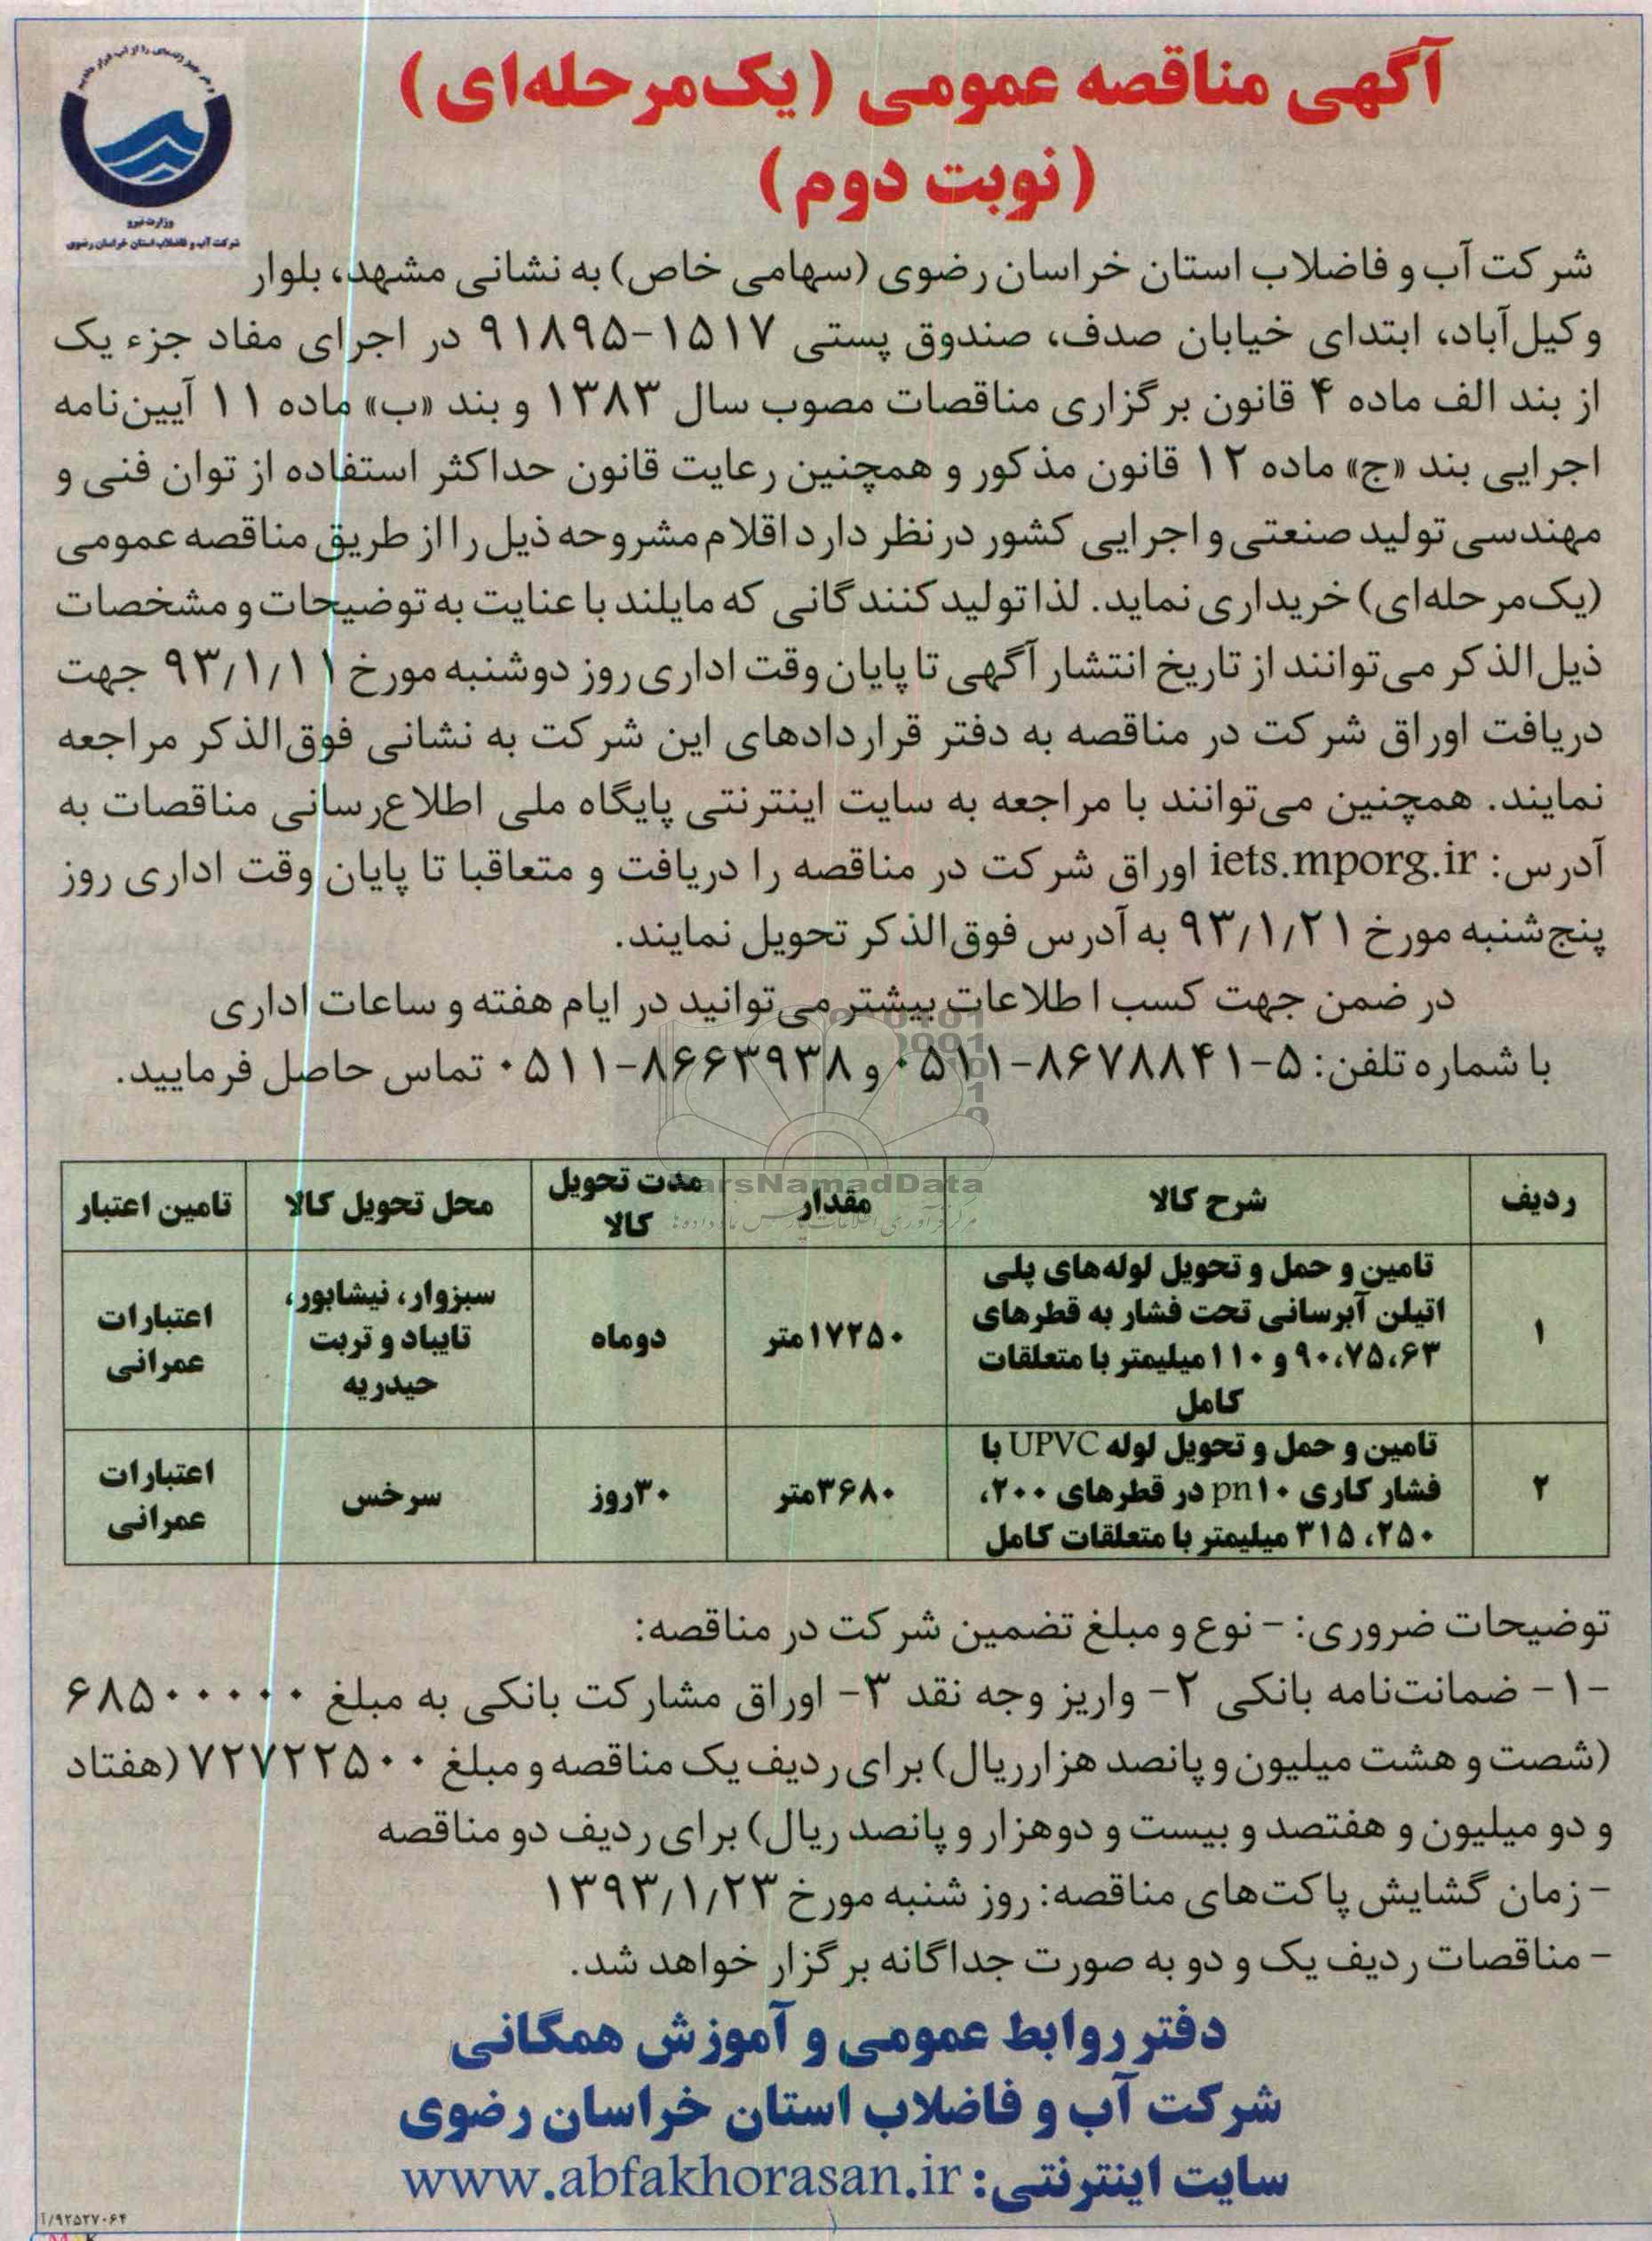 آگهی مناقصه عمومی (یک‌مرحله‌ای)
(نوبت دوم)
وزارت نیرو
شرکت آب و فاضلاب استان خراسان رضوی
شرکت آب و فاضلاب استان خراسان رضوی (سهامی خاص) به نشانی مشهد، بلوار
وکیل‌آباد، ابتدای خیابان صدف، صندوق پستی ۱۵۱۷-۹۱۸۹۵ در اجرای مفاد جزء یک
از بند الف ماده ۴ قانون برگزاری مناقصات مصوب سال ۱۳۸۳ و بند «ب» ماده ۱۱ آیین‌نامه
اجرایی بند «ج» ماده ۱۲ قانون مذکور و همچنین رعایت قانون حداکثر استفاده از توان فنی و
مهندسی تولید صنعتی و اجرایی کشور در نظر دارد اقلام مشروحه ذیل را از طریق مناقصه عمومی
(یک‌مرحله‌ای) خریداری نماید. لذا تولیدکنندگانی که مایلند با عنایت به توضیحات و مشخصات
ذیل‌الذکر می‌توانند از تاریخ انتشار آگهی تا پایان وقت اداری روز دوشنبه مورخ ۹۳/۱/۱۱ جهت
دریافت اوراق شرکت در مناقصه به دفتر قراردادهای این شرکت به نشانی فوق‌الذکر مراجعه
نمایند. همچنین می‌توانند با مراجعه به سایت اینترنتی پایگاه ملی اطلاع‌رسانی مناقصات به
آدرس: iets.mporg.ir اوراق شرکت در مناقصه را دریافت و متعاقبا تا پایان وقت اداری روز
پنج‌شنبه مورخ ۹۳/۱/۲۱ به آدرس فوق‌الذکر تحویل نمایند.
در ضمن جهت کسب اطلاعات بیشتر می‌توانید در ایام هفته و ساعات اداری
با شماره تلفن: ۵-۸۶۷۸۸۴۱-۰۵۱۱ و ۸۶۶۳۹۳۸-۰۵۱۱ تماس حاصل فرمایید.
ParsNamadData
ردیف شرح کالا مقدار مدت تحویل کالا محل تحویل کالا تامین اعتبار
۱ تامین و حمل و تحویل لوله‌های پلی
اتیلن آبرسانی تحت فشار به قطرهای
۶۳،۷۵،۹۰ و ۱۱۰ میلیمتر با متعلقات
کامل
۱۷۲۵۰متر
دوماه
سبزوار، نیشابور،
تایباد و تربت
حیدریه
اعتبارات
عمرانی
۲ تامین و حمل و تحویل لوله UPVC با
فشار کاری pn۱۰ در قطرهای ۲۰۰،
۲۵۰، ۳۱۵ میلیمتر با متعلقات کامل
۳۶۸۰متر
۳۰روز
سرخس
اعتبارات
عمرانی
توضیحات ضروری: - نوع و مبلغ تضمین شرکت در مناقصه:
-۱- ضمانت‌نامه بانکی ۲- واریز وجه نقد ۳- اوراق مشارکت بانکی به مبلغ ۶۸۵۰۰۰۰۰
(شصت و هشت میلیون و پانصد هزار ریال) برای ردیف یک مناقصه و مبلغ ۷۲۷۲۲۵۰۰ (هفتاد
و دو میلیون و هفتصد و بیست و دوهزار و پانصد ریال) برای ردیف دو مناقصه
- زمان گشایش پاکت‌های مناقصه: روز شنبه مورخ ۱۳۹۳/۱/۲۳
- مناقصات ردیف یک و دو به صورت جداگانه برگزار خواهد شد.
دفتر روابط عمومی و آموزش همگانی
شرکت آب و فاضلاب استان خراسان رضوی
سایت اینترنتی: www.abfakhorasan.ir
۹۲۵۲۷۰۶۴/آ